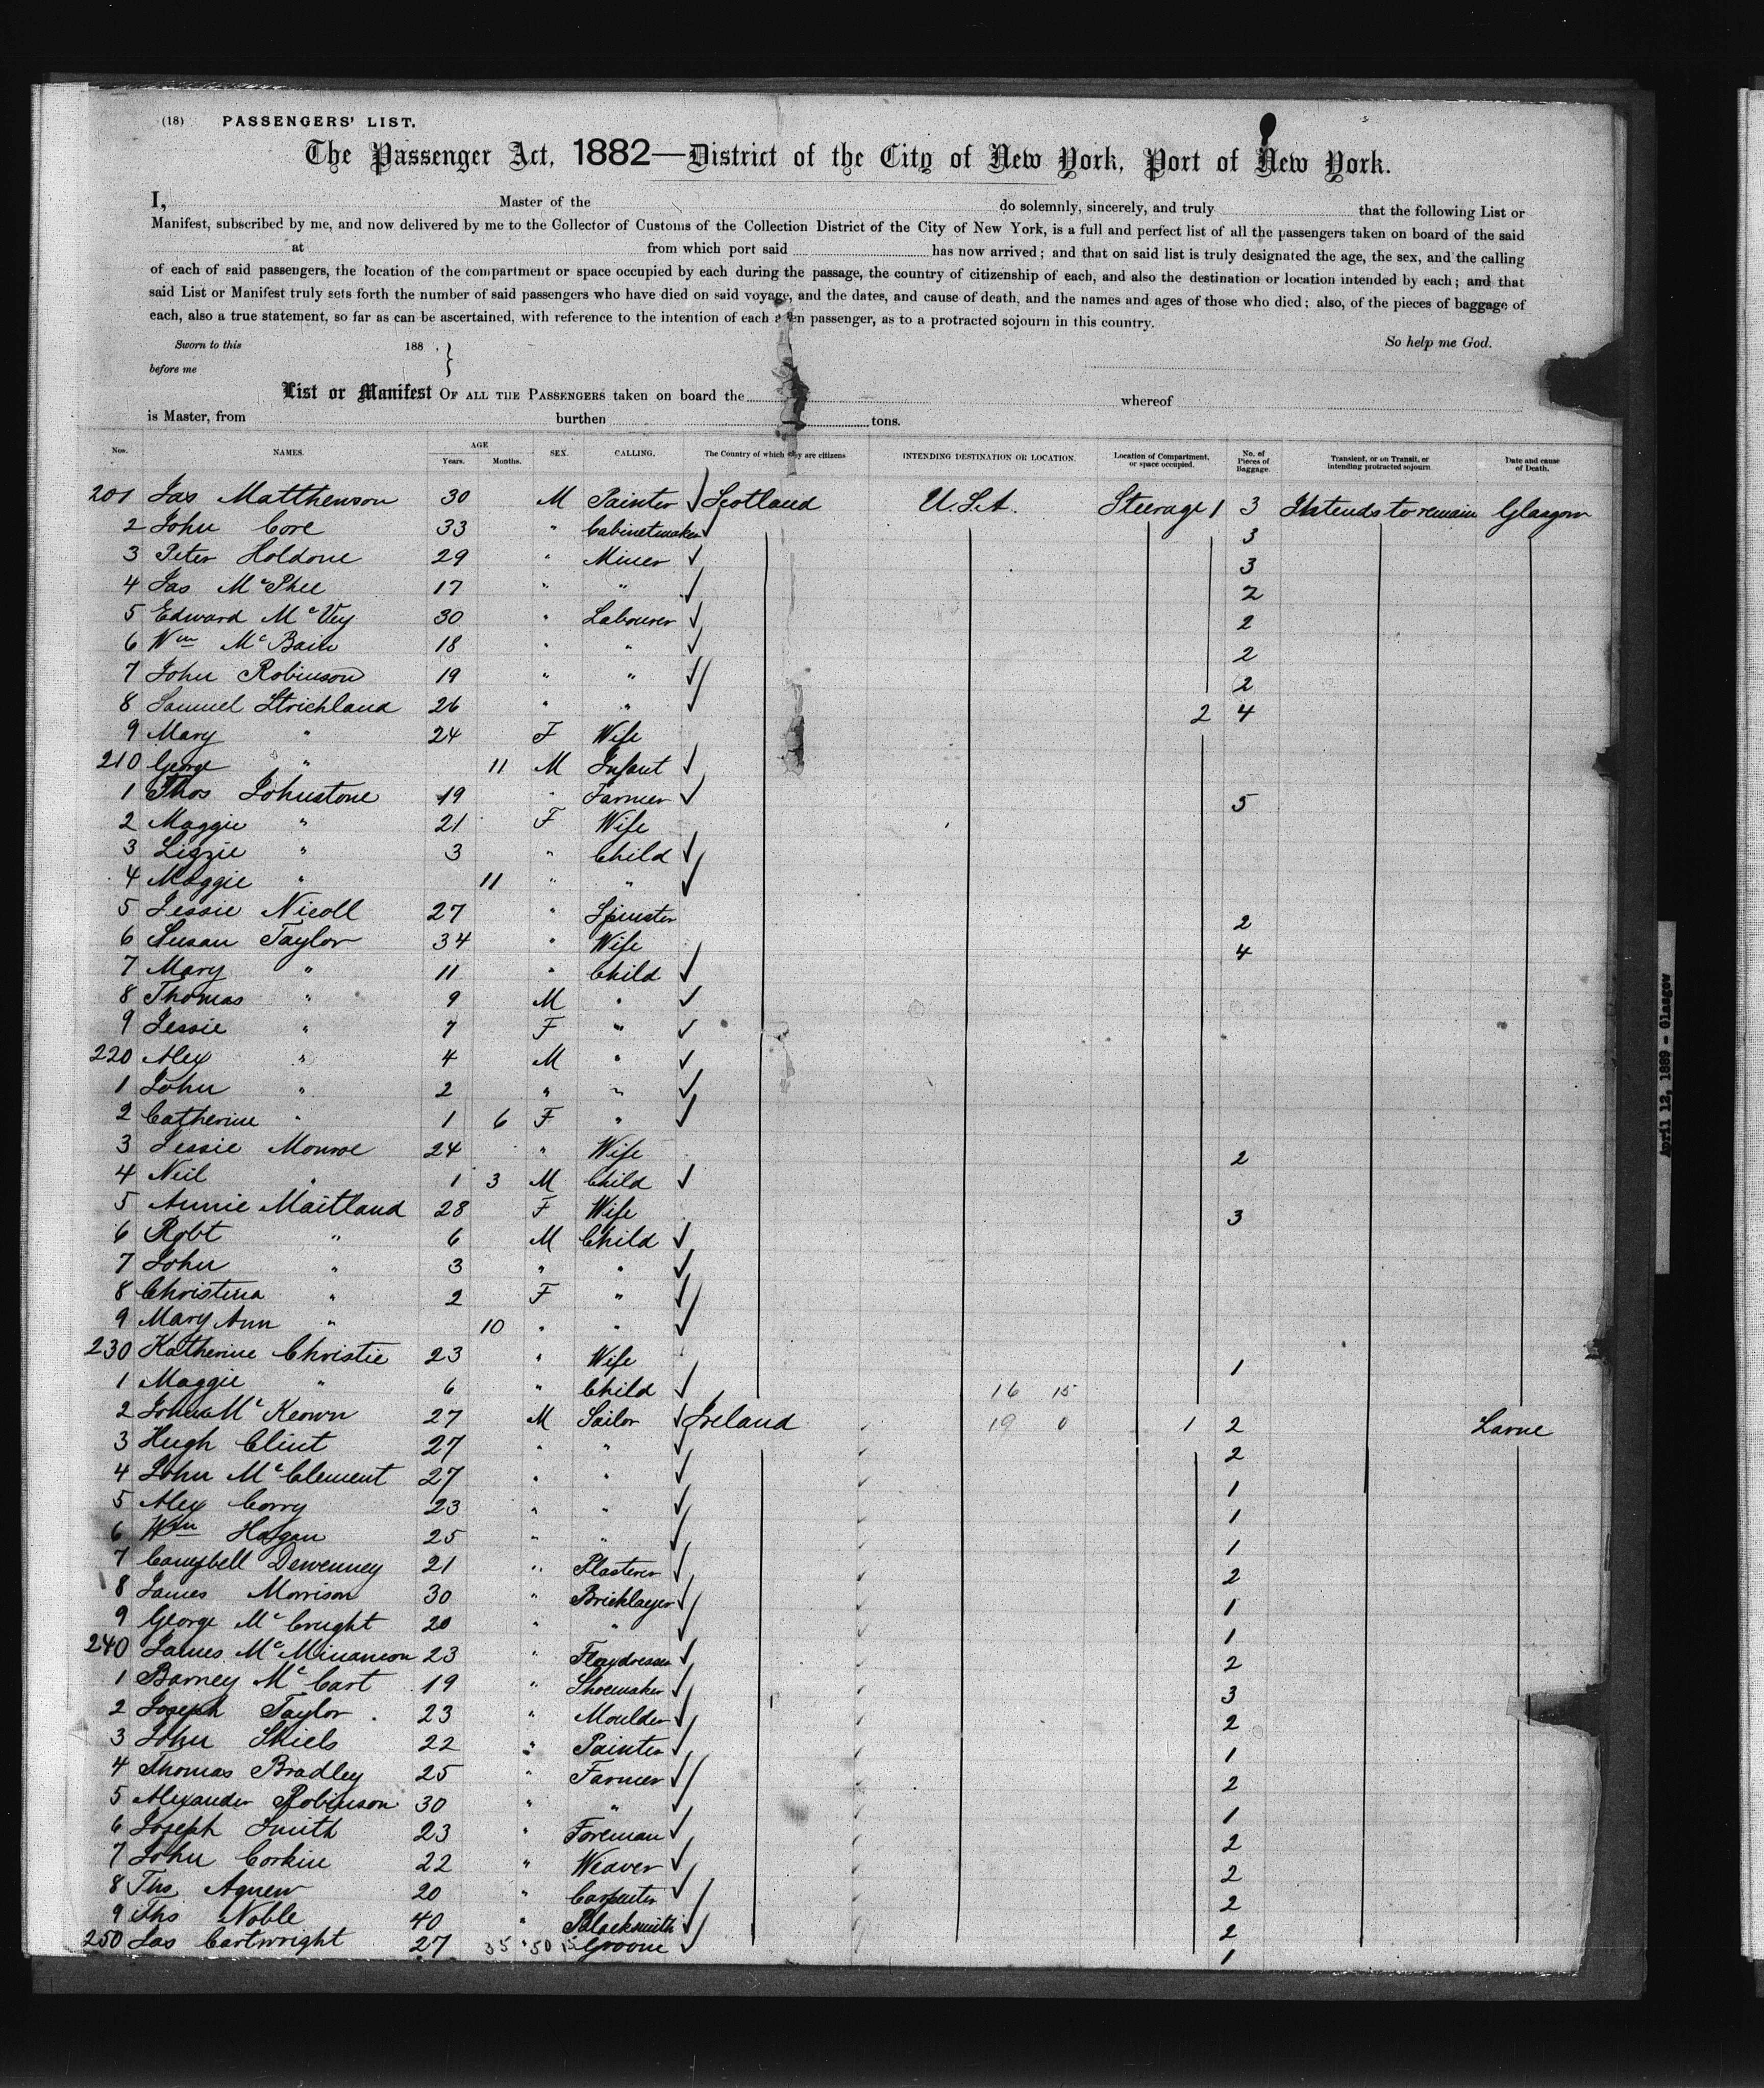 (18) PASSENGERS' LIST.
The Passenger Act, 1882—District of the City of New York, Port of New York.
I, Master of the do solemnly, sincerely, and truly that the following List or
Manifest, subscribed by me, and now delivered by me to the Collector of Customs of the Collection District of the City of New York, is a full and perfect list of all the passengers taken on board of the said
at from which port said has now arrived; and that on said list is truly designated the age, the sex, and the calling
of each of said passengers, the location of the compartment or space occupied by each during the passage, the country of citizenship of each, and also the destination or location intended by each; and that
said List or Manifest truly sets forth the number of said passengers who have died on said voyage, and the dates, and cause of death, and the names and ages of those who died; also, of the pieces of baggage of
each, also a true statement, so far as can be ascertained, with reference to the intention of each alien passenger, as to a protracted sojourn in this country.
Sworn to this 188 . So help me God.
before me
List or Manifest OF ALL THE PASSENGERS taken on board the whereof
is Master, from burthen tons.
Nos. NAMES. AGE Years. Months. SEX. CALLING. The Country of which they are citizens INTENDING DESTINATION OR LOCATION. Location of Compartment, or space occupied. No. of Pieces of Baggage. Transient, or on Transit, or intending protracted sojourn Date and cause of Death.
201 Jas Matthewson 30 M Painter ✓ Scotland U.S.A. Steerage 1 3 Intends to remain Glasgow
2 John Core 33 " Cabinetmaker ✓ 3
3 Peter Holdone 29 " Miner ✓ 3
4 Jas McPhee 17 " " ✓ 2
5 Edward McVey 30 " Labourer ✓ 2
6 Wm McBain 18 " " ✓ 2
7 John Robinson 19 " " ✓ 2
8 Samuel Strichland 26 " " ✓ 2 4
9 Mary " 24 F Wife
210 George " 11 M Infant ✓
1 Thos Johnstone 19 " Farmer ✓ 5
2 Maggie " 21 F Wife
3 Lizzie " 3 " Child ✓
4 Maggie " 11 " " ✓
5 Jessie Nicoll 27 " Spinster 2
6 Susan Taylor 34 " Wife 4
7 Mary " 11 " Child ✓
8 Thomas " 9 M " ✓
9 Jessie " 7 F " ✓
220 Alex " 4 M " ✓
1 John " 2 " " ✓
2 Catherine " 1 6 F " ✓
3 Jessie Monroe 24 " Wife 2
4 Neil " 1 3 M Child ✓
5 Annie Maitland 28 F Wife 3
6 Robt " 6 M Child ✓
7 John " 3 " " ✓
8 Christina " 2 F " ✓
9 Mary Ann " 10 " " ✓
230 Katherine Christie 23 " Wife 1
1 Maggie " 6 " Child ✓ 16 15
2 John McKeown 27 M Sailor ✓ Ireland 19 0 1 2 Larne
3 Hugh Clint 27 " " ✓ 2
4 John McClement 27 " " ✓ 1
5 Alex Corry 23 " " ✓ 1
6 Wm Hogan 25 " " ✓ 1
7 Campbell Dewenney 21 " Plasterer ✓ 2
8 James Morrison 30 " Bricklayer ✓ 1
9 George McCrught 20 " " ✓ 1
240 James McMinamon 23 " Flaxdresser ✓ 2
1 Barney McCart 19 " Shoemaker ✓ 3
2 Joseph Taylor 23 " Moulder ✓ 2
3 John Shiels 22 " Painter ✓ 1
4 Thomas Bradley 25 " Farmer ✓ 2
5 Alexander Robinson 30 " " ✓ 1
6 Joseph Smith 23 " Foreman ✓ 2
7 John Corkin 22 " Weaver ✓ 2
8 Thos Agnew 20 " Carpenter ✓ 2
9 Thos Noble 40 " Blacksmith ✓ 2
250 Jas Cartwright 27 35 50 15 Groom ✓ 1
April 12, 1889 - Glasgow